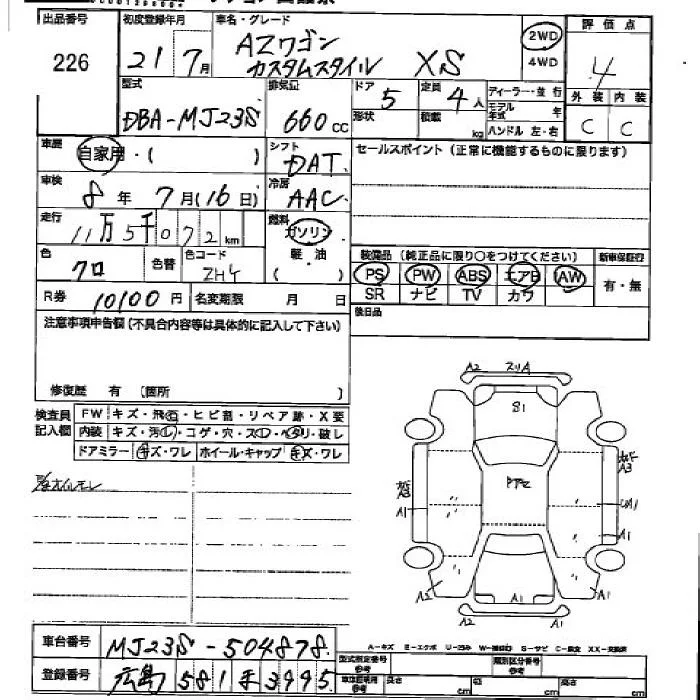 出品番号
226
初度登録年月
21 7月
車名・グレード
AZワゴン
カスタムスタイル XS
2WD
4WD
評価点
4
外装 内装
C C
型式
DBA-MJ23S
排気量
660cc
ドア
5
形状
定員
4人
積載
kg
ディーラー・並行
モデル年式 年
ハンドル 左・右
車歴
自家用・( )
シフト
DAT
セールスポイント (正常に機能するものに限ります)
車検
8年 7月(16日)
冷房
AAC
走行
11万5千072km
燃料
ガソリン・
軽油
( )
色
クロ
色替
色コード
ZH4
装備品 (純正品に限り○をつけてください)
新車保証行
PS PW ABS エアB AW
SR ナビ TV カワ
有・無
R券 10100円
名変期限 月 日
後日品
注意事項申告欄 (不具合内容等は具体的に記入して下さい)
修復歴 有 (箇所 )
検査員
記入欄
FW キズ・飛石・ヒビ割・リペア跡・X要
内装 キズ・汚レ・コゲ・穴・スレ・ヘタリ・破レ
ドアミラー キズ・ワレ ホイール・キャップ キズ・ワレ
A2 スリA
S1
A3
A1
A3
A1
A2
A1
A2
A1
車台番号
MJ23S-504878
登録番号
広島 581 3995
A-キズ E-エクボ U-凹み W-補修跡 S-サビ C-腐食 XX-交換済
型式指定番号
参考
類別区分番号
参考
車体証明用
参考
長さ cm
幅 cm
高さ cm